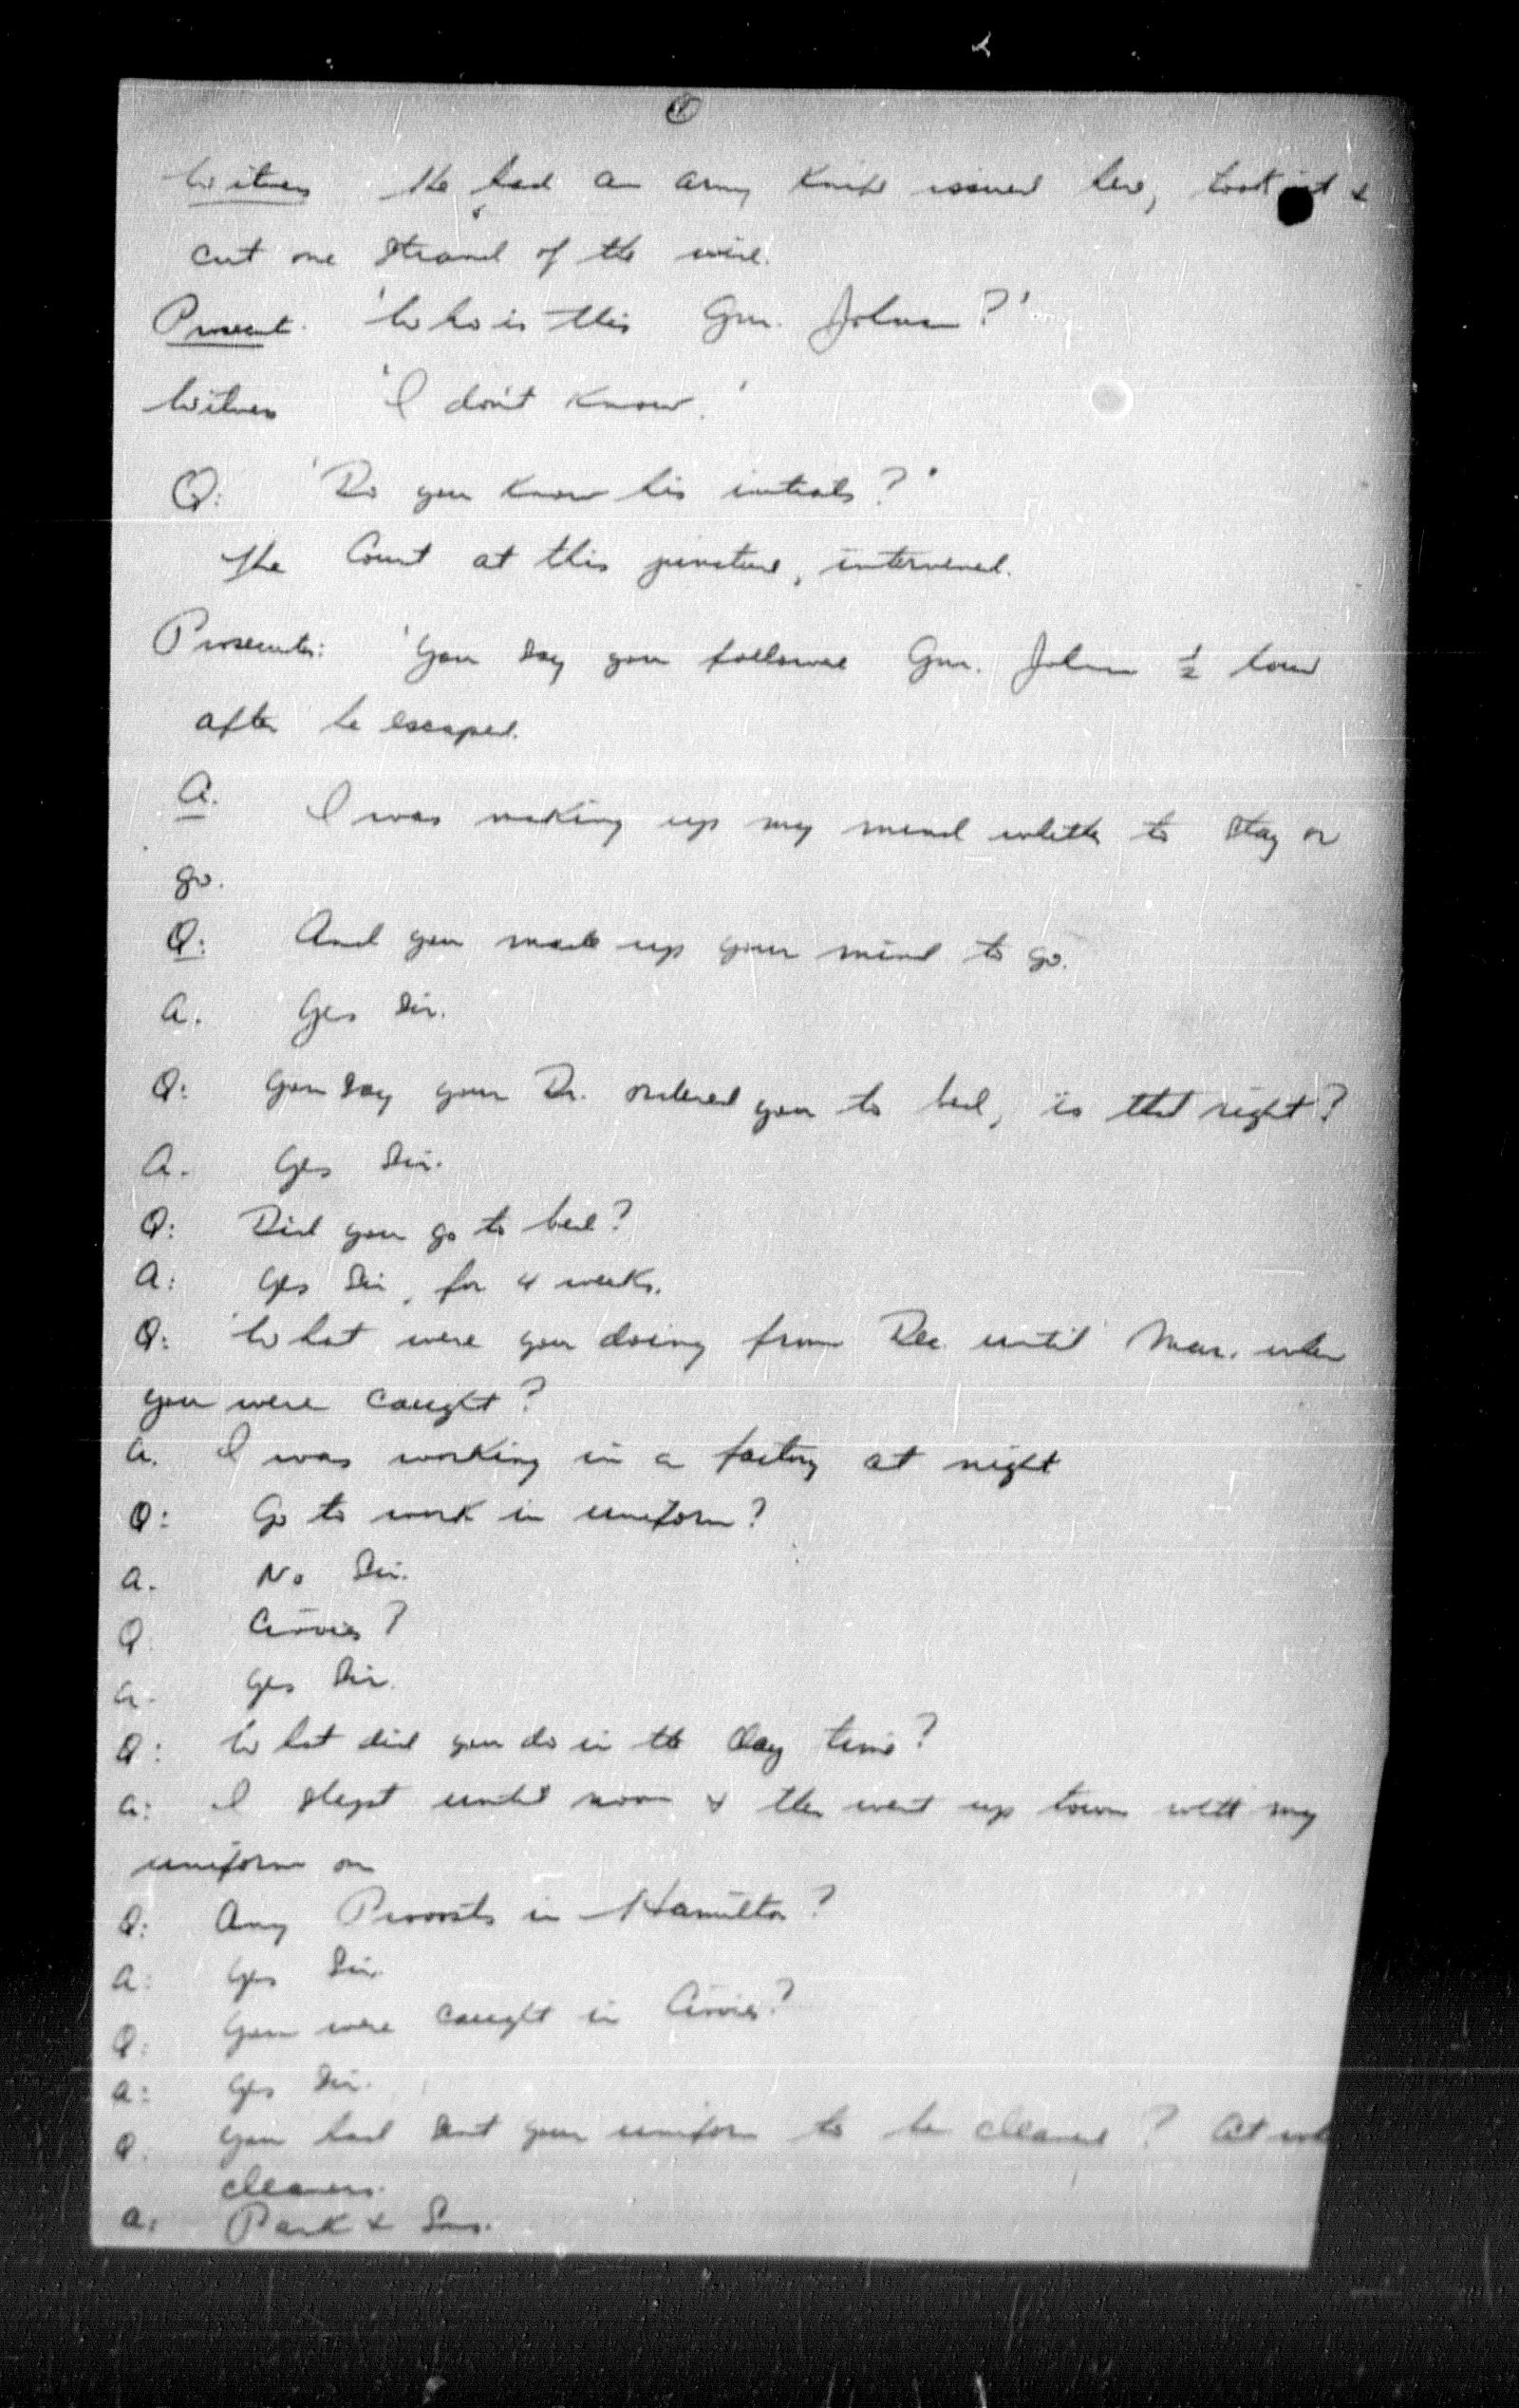 Witness He had an army knife issued here, took it &
cut one strand of the wire.
Prosecut. 'Who is this Gnr. Johnson?'
Witness 'I don't know.'
Q: 'Do you know his initials?'
The Court at this juncture, intervened.
Prosecutor: 'You say you followed Gnr. Johnson ½ hour
after he escaped.
A. I was making up my mind whether to stay or
go.
Q: And you made up your mind to go.
A. Yes Sir.
Q: You say your Dr. ordered you to bed, is that right?
A. Yes Sir.
Q: Did you go to bed?
A: Yes Sir, for 4 weeks.
Q: What were you doing from Dec. until Mar. when
you were caught?
A. I was working in a factory at night
Q: Go to work in uniform?
A. No Sir.
Q. Civvies?
A. Yes Sir.
Q: What did you do in the day time?
A: I slept until noon & then went up town with my
uniform on
Q: Any Provosts in Hamilton?
A: Yes Sir
Q: You were caught in Civvies?
A: Yes Sir.
Q. You had sent your uniform to be cleaned? At
cleaners.
A: Park & Sons.